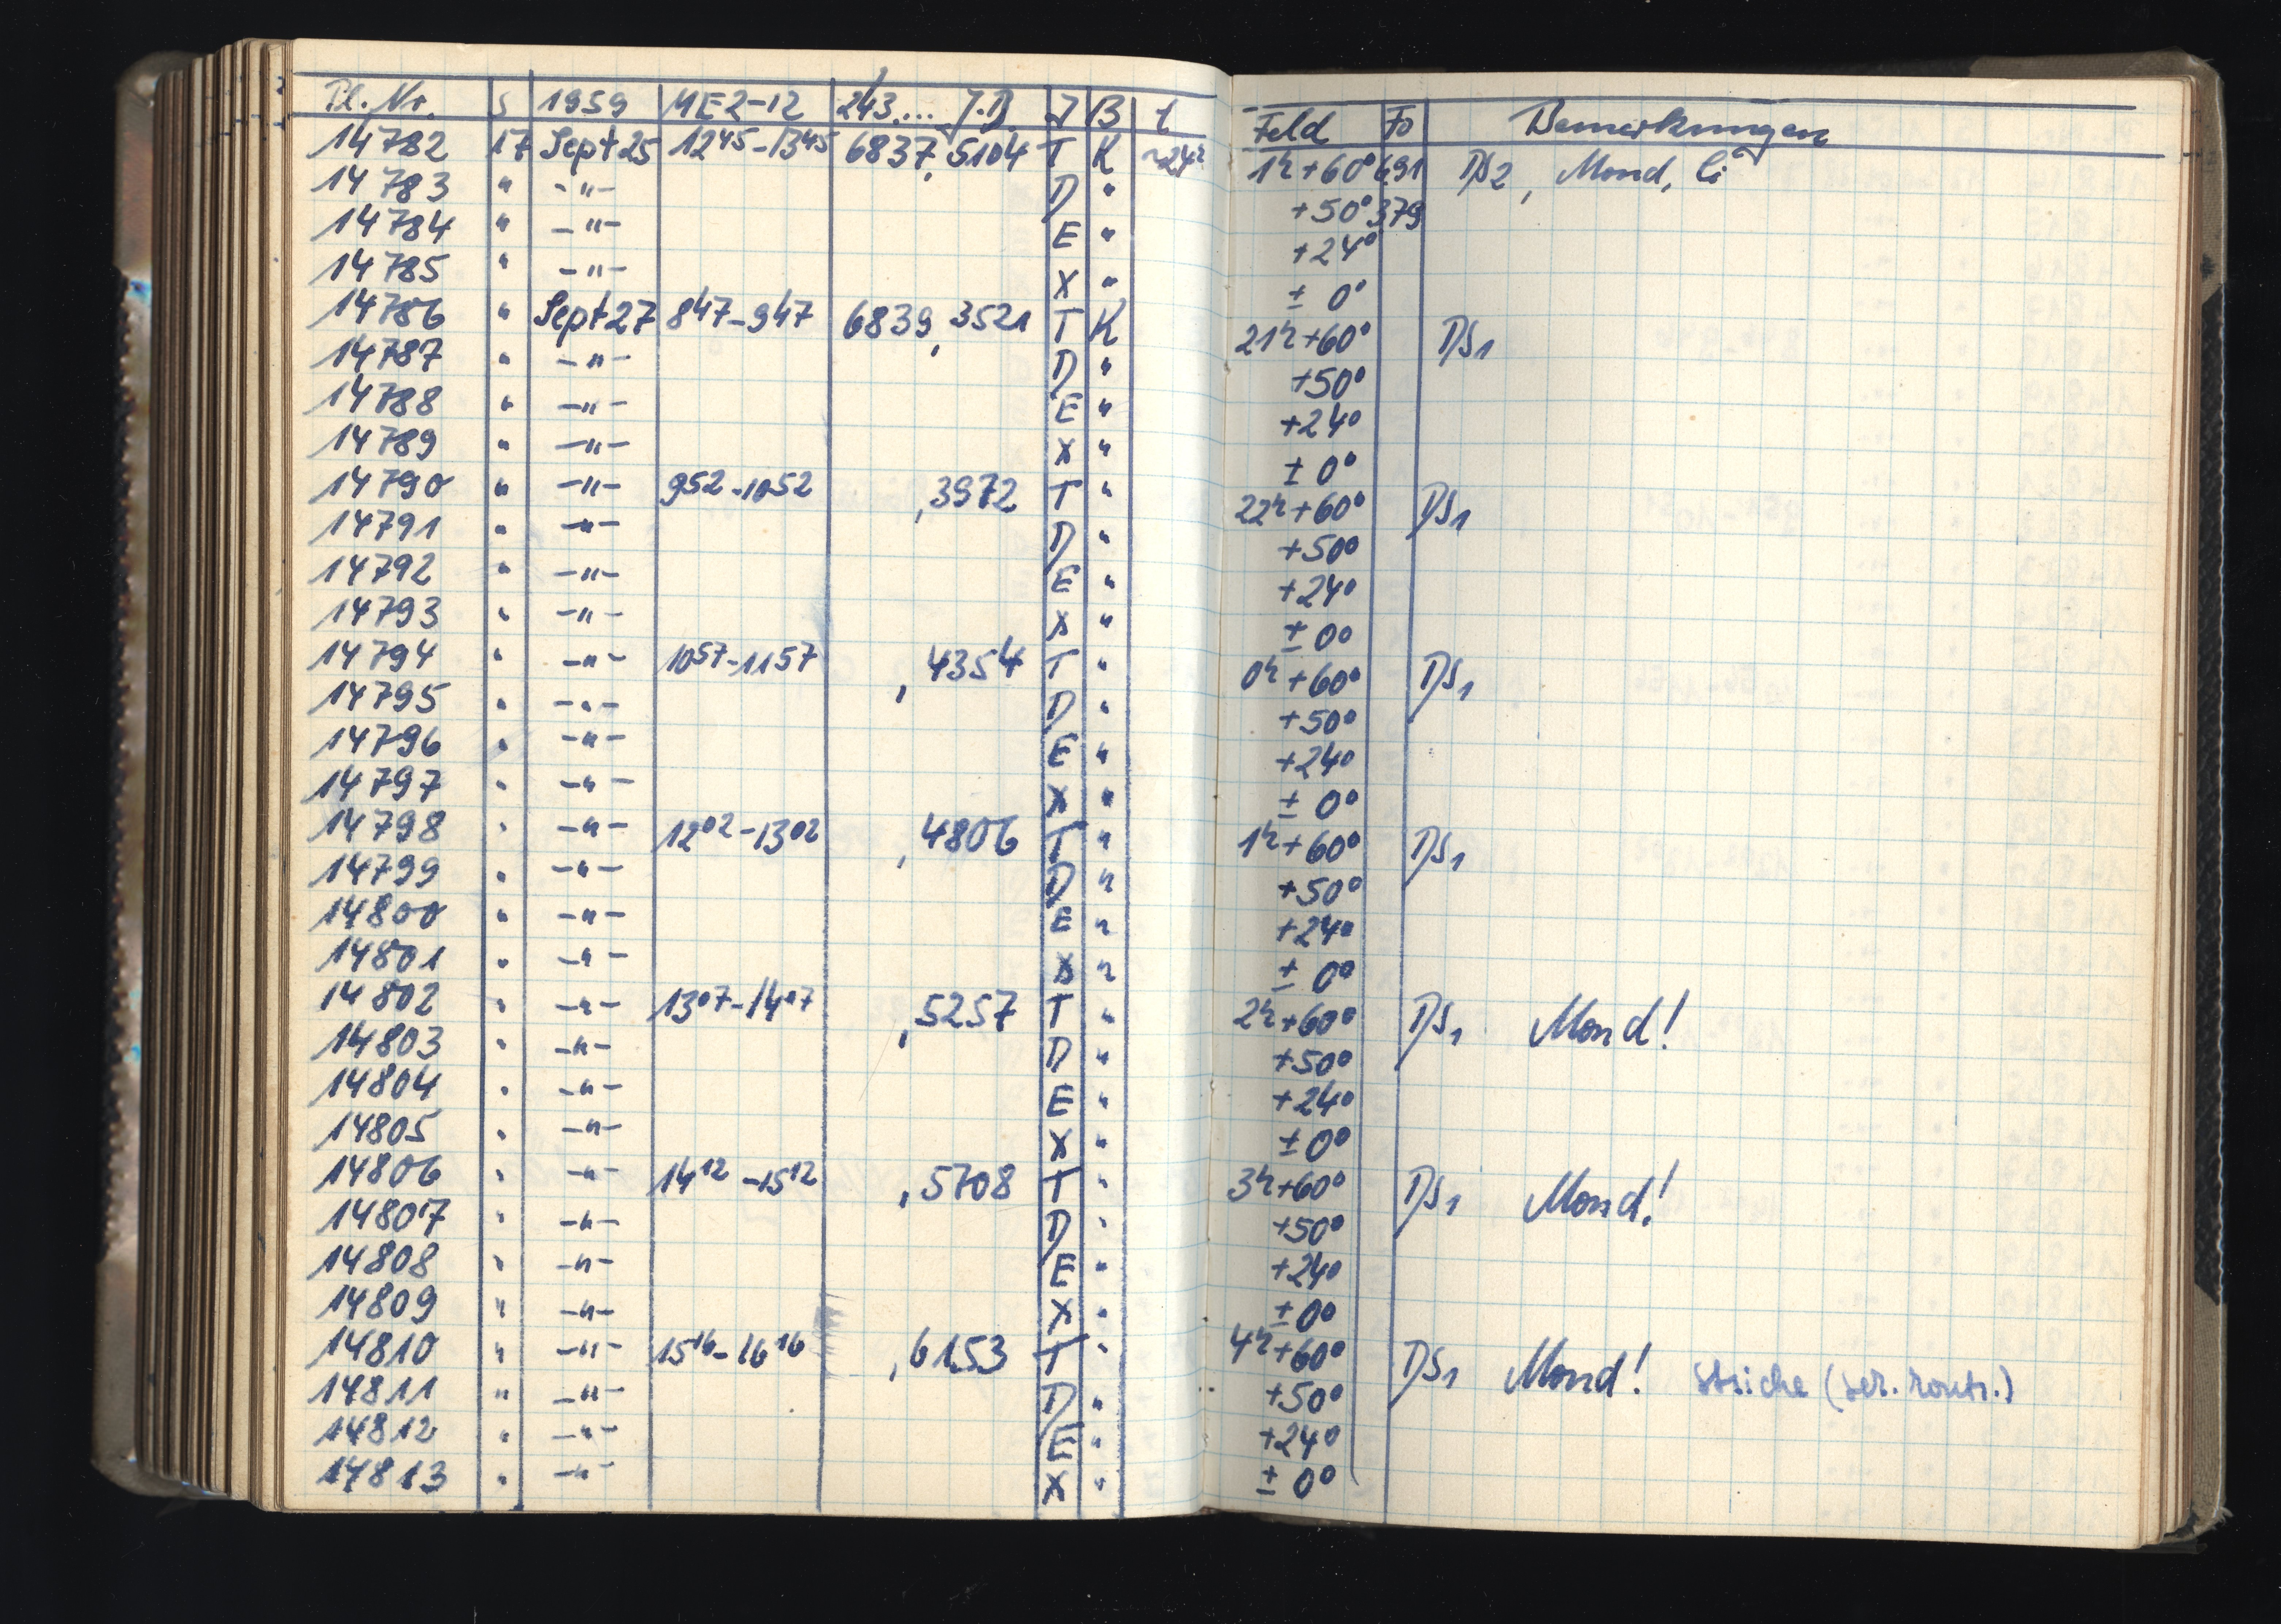 Pl. Nr. S 1959 MEZ-12 243.... J.D J B t Feld Fo Bemerkungen
14782 17 Sept 25 12 45-13 45 6837,5104 T K ~24h 1h+60° 691 DS2, Mond, Ci
14783 " -"- D " +50° 379
14784 " -"- E " +24°
14785 " -"- X " ± 0°
14786 " Sept 27 8 47-9 47 6839,3521 T K 21h+60° DS1
14787 " -"- D " +50°
14788 " -"- E " +24°
14789 " -"- X " ± 0°
14790 " -"- 9 52-10 52 ,3972 T " 22h+60° DS1
14791 " -"- D " +50°
14792 " -"- E " +24°
14793 " -"- X " ± 0°
14794 " -"- 10 57-11 57 ,4354 T " 0h+60° DS1
14795 " -"- D " +50°
14796 " -"- E " +24°
14797 " -"- X " ± 0°
14798 " -"- 12 02-13 02 ,4806 T " 1h+60° DS1
14799 " -"- D " +50°
14800 " -"- E " +24°
14801 " -"- X " ± 0°
14802 " -"- 13 07-14 07 ,5257 T " 2h+60° DS1 Mond!
14803 " -"- D " +50°
14804 " -"- E " +24°
14805 " -"- X " ± 0°
14806 " -"- 14 12-15 12 ,5708 T " 3h+60° DS1 Mond!
14807 " -"- D " +50°
14808 " -"- E " +24°
14809 " -"- X " ± 0°
14810 " -"- 15 16-16 16 ,6153 T " 4h+60° DS1 Mond! Striche
14811 " -"- D " +50°
14812 " -"- E " +24°
14813 " -"- X " ± 0°